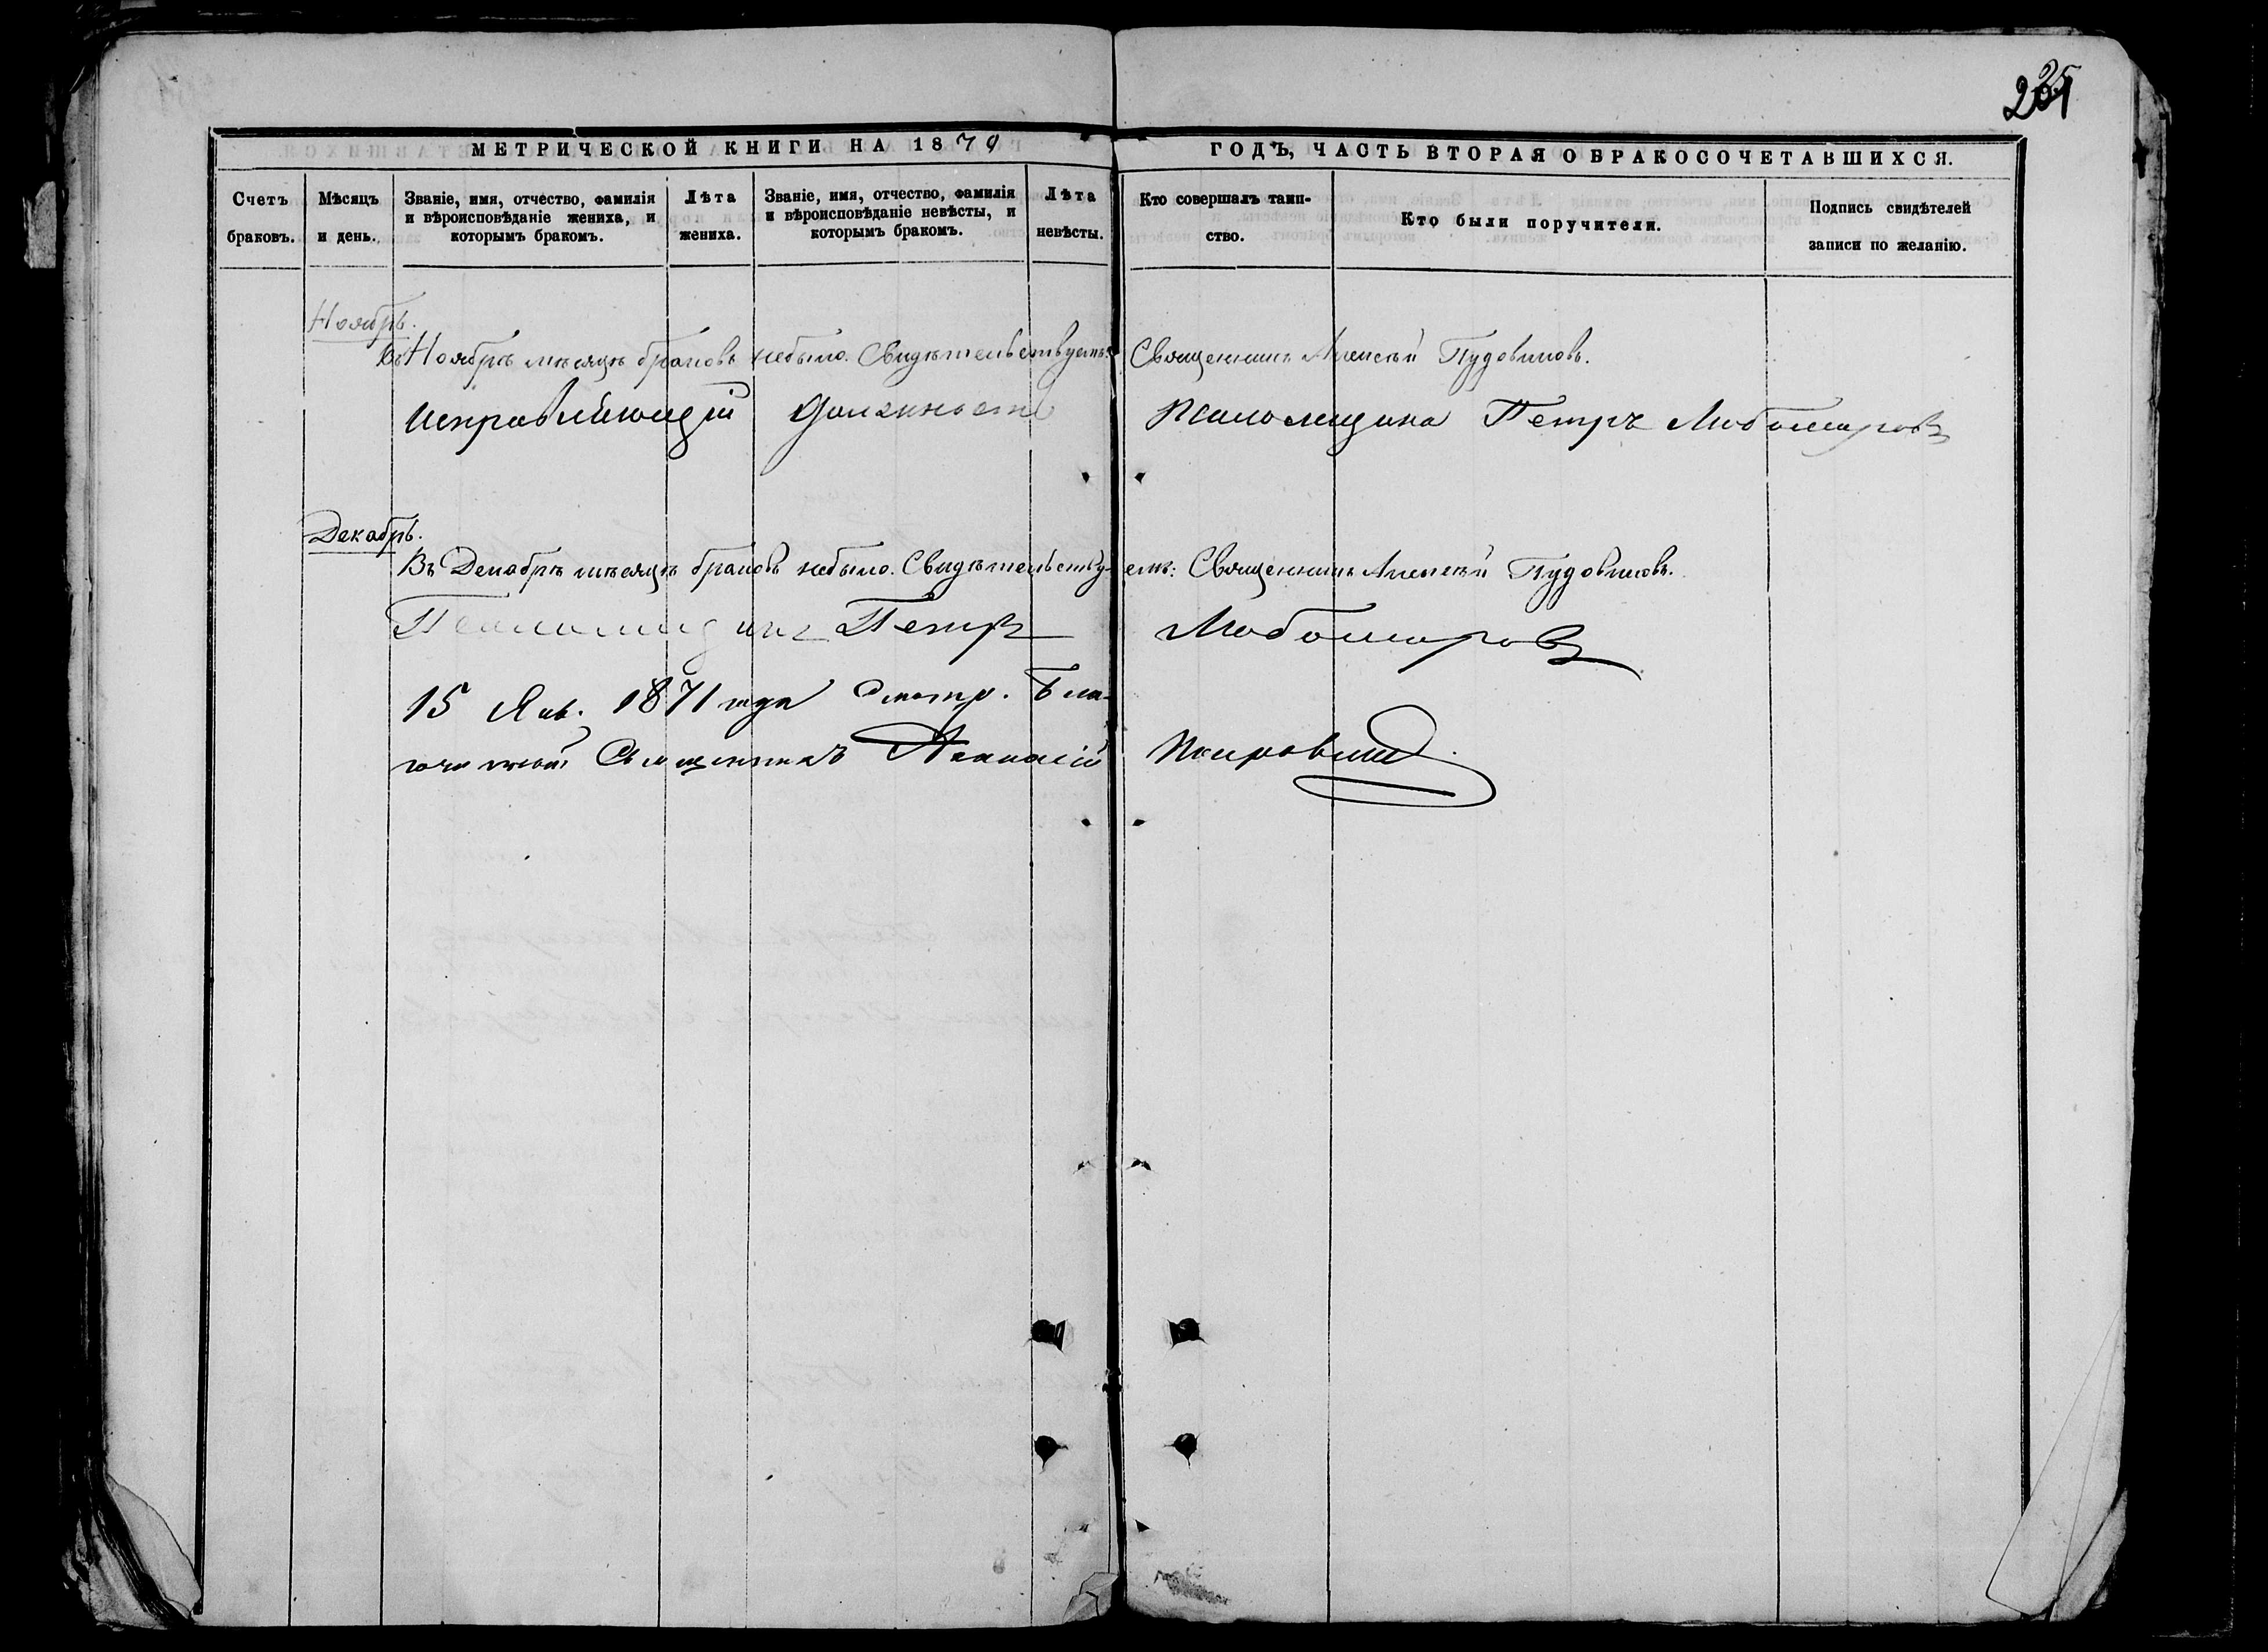 235
МЕТРИЧЕСКОЙ КНИГИ НА 1870 ГОДЪ, ЧАСТЬ ВТОРАЯ О БРАКОСОЧЕТАВШИХСЯ.
Счетъ браковъ.
Мѣсяцъ и день.
Званіе, имя, отчество, фамилія и вѣроисповѣданіе жениха, и которымъ бракомъ.
Лѣта жениха.
Званіе, имя, отчество, фамилія и вѣроисповѣданіе невѣсты, и которымъ бракомъ.
Лѣта невѣсты.
Кто совершалъ таинство.
Кто были поручители.
Подпись свидѣтелей записи по желанію.
Ноябрь.
Въ Ноябрѣ мѣсяцѣ браковъ небыло. Свидѣтельствуемъ: Священникъ Алексѣй Пудовиковъ.
Исправляющій должность Псаломщика Петръ Любомировъ
Декабрь.
Въ Декабрѣ мѣсяцѣ браковъ небыло. Свидѣтельствуемъ: Священникъ Алексѣй Пудовиковъ.
Псаломщикъ Петръ Любомировъ
15 Янв. 1871 года Смотр. Бла-
гочинный Священникъ Аѳанасій